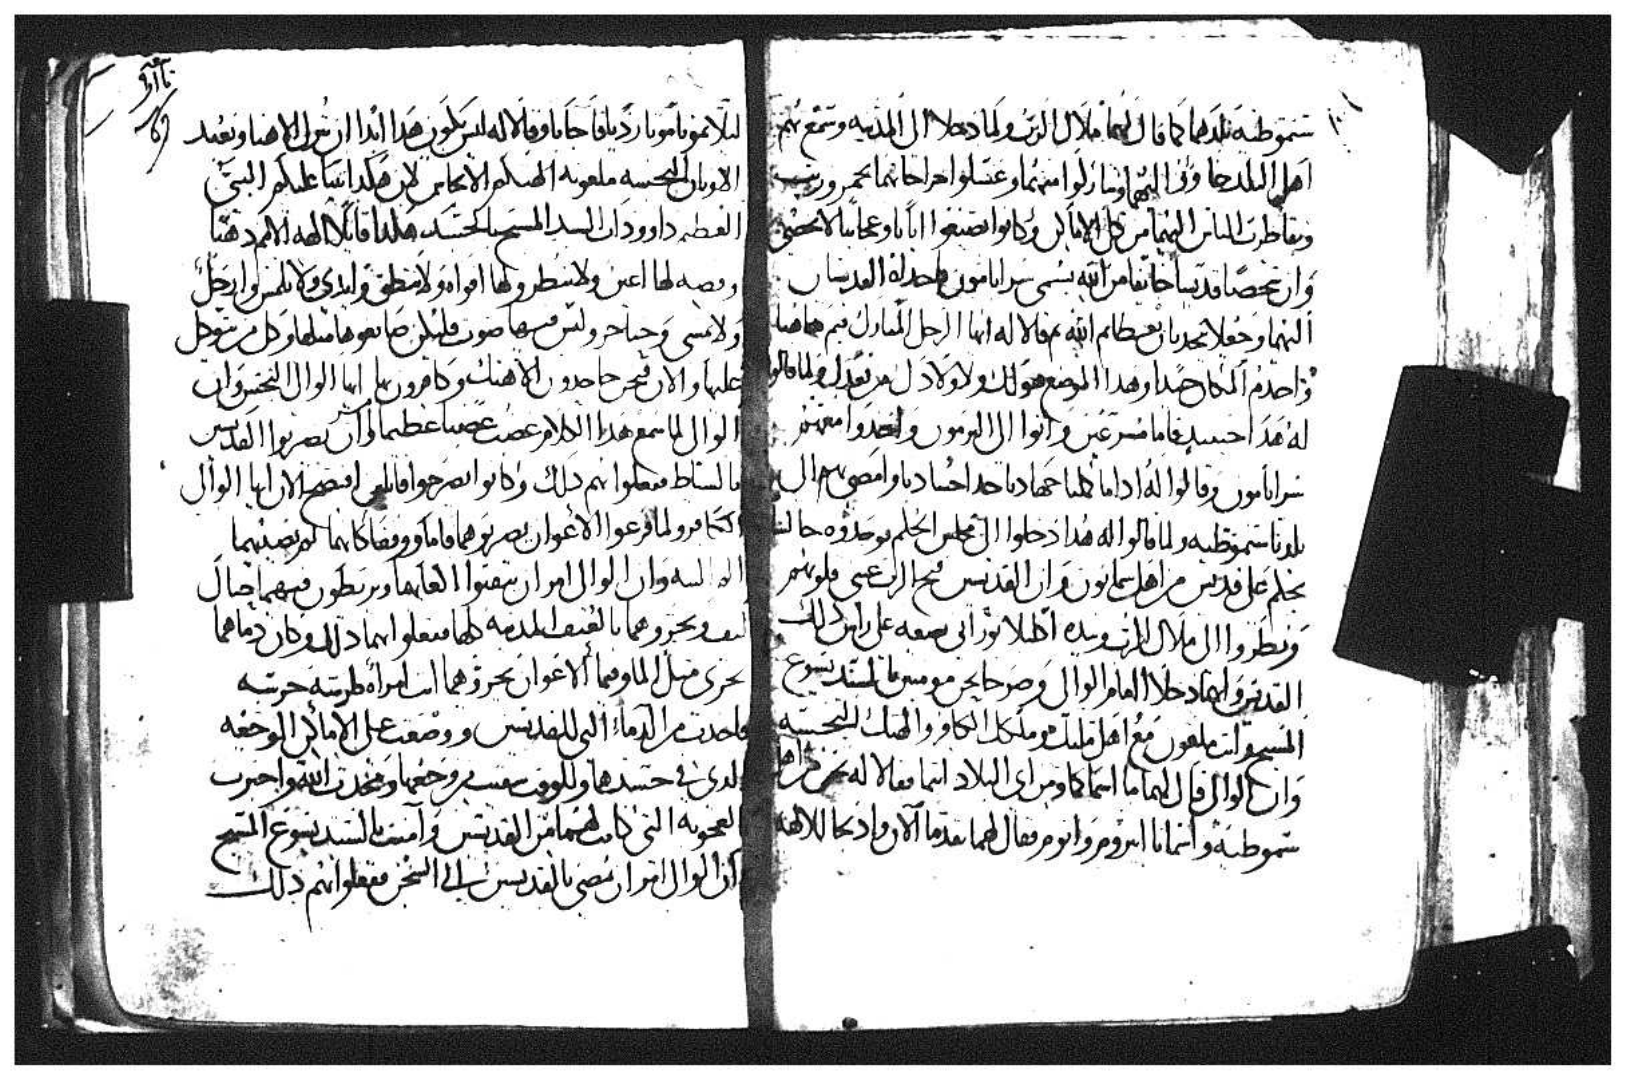 سنموطيه بلدهما كما قال لهما ملاك الرب ولما دخلا الى المدينه وسمع بهم
اهل البلد جاوا اليهما وتباركوا منهما وغسلوا جراحاتهما بخمر وزيت
وتقاطرت الناس اليهما من كل الاماكن وكانوا يصنعوا ايات وعجايبا لا تحصى
وان شخصا قديسا خايفا من الله يسمى سرابامون
اليهما وجعلا يتحدثان بعظايم الله ثم قالا له ايها الرجل المبارك قيم هاهنا
واخدم المكان جيدا وهذا الموضع هو لك ولاولادك من بعدك ولما قالوا
له هذا حينيد قاما مسرعين واتوا الى
سرابامون وقالوا له اذا ما كملنا جهادنا خد اجسادنا وامضي بهم الى
بلدنا سنموطيه ولما قالوا له هذا دخلوا الى مجلس الحكم فوجدوه جالسا
يحكم على قديس من اهل سمانون وان القديسين فتح الرب عيني قلوبهم
ونظروا الى ملاك الرب وبيده اكليلا نوراني يضعه على راس ذلك
القديس وانهما دخلا امام الوالي وصرخا نحن مومنين بالسيد يسوع
المسيح وانت ملعون مع اهل ملتك وملكك الكافر والهتك النجسه
وان الوالي قال لهما ما اسماكما ومن اي البلاد انتما فقالا له نحن من اهل
سنموطيه واسمانا ابروم واتوم فقال لهما تقدما الان واذبحا للالهه
ليلا تموتا موتا رديا فاجابا وقالا له ليس يكون هذا ابدا ان نترك الاهنا ونعبد
الاوثان النجسه ملعونه الهتكم الانجاس لان هكذا تنبا عليكم النبي
العظيم داوود اب السيد المسيح بالجسد هكذا قايلا الهه الامم ذهبا
وفضه لها اعين ولا تنظر ولها افواه ولا تنطق وايدي ولا تلمس وارجل
ولا تمشي وحناجر وليس فيها صوت فليكن صانعوها مثلها وكل من يتوكل
عليها والان فنحن جاحدون الاهتك وكافرون بها ايها الوالي النجس وان
الوالي لما سمع هذا الكلام غضب غضبا عظيما وامر ان يضربوا القديسين
بالسياط ففعلوا بهم ذلك وكانوا يصرخوا قايلين افتضح الان ايها الوالي
الكافر ولما فرغوا الاعوان يضربوهما قاما ووقفا كانهما لم يصبهما
البته وان الوالي امر ان يثقبوا اكعابهما ويربطون فيهما حبال
ليف ويجروهما بالعنف المدينه كلها ففعلوا بهما ذلك وكان دماهما
يجري مثل الما وفيما الاعوان يجروهما اتت امراه طرشه خرسه
فاخذت من الدماء التي للقديسين ووضعت على الاماكن الموجعه
الذي في جسدها وللوقت شفيت من وجعها ومجدت الله واخبرت
العجوبه التي كانت لهما من القديسين وامنت بالسيد يسوع المسيح
وان الوالي امر ان يمضى بالقديسين الى السجن ففعلوا بهم ذلك